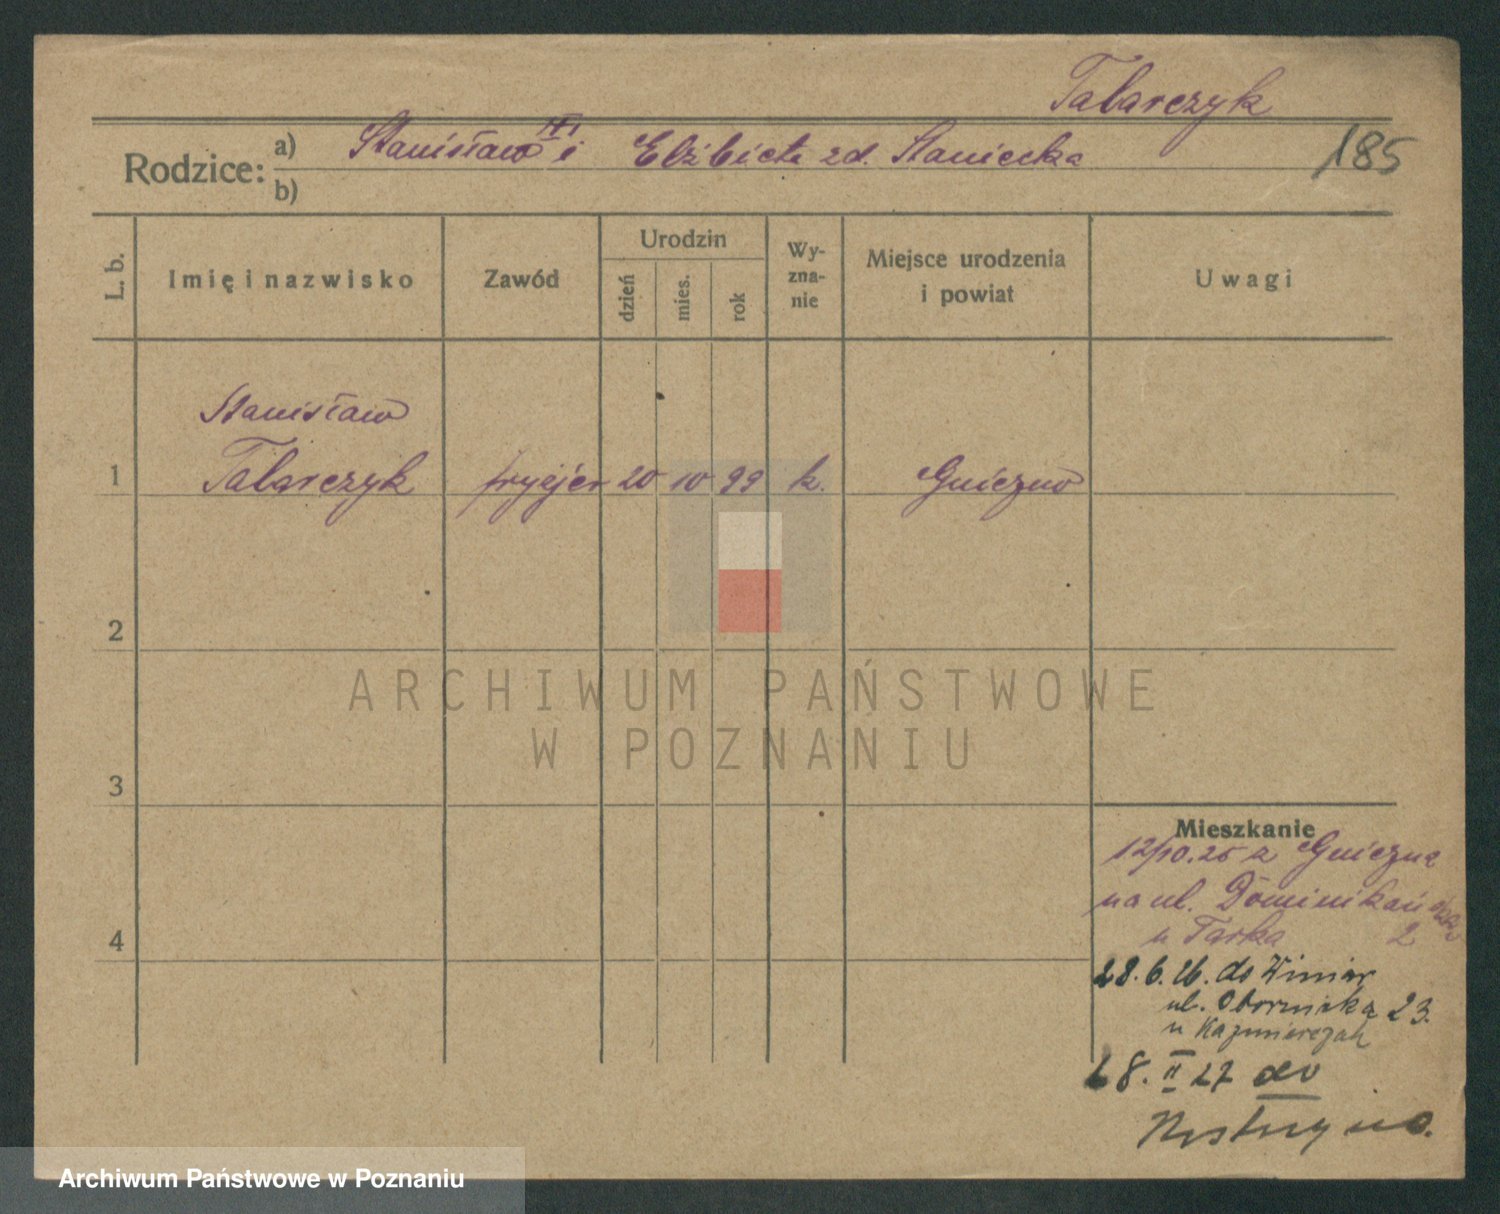 Tabarczyk
Rodzice: a) Stanisław i Elżbieta zd. Staniecka
185
b)
L. b.
Imię i nazwisko
Zawód
Urodzin
dzień
mies.
rok
Wy-
zna-
nie
Miejsce urodzenia
i powiat
Uwagi
Stanisław
1 Tabarczyk fryzjer 20 10 99 k. Gniezno
2
ARCHIWUM PAŃSTWOWE
W POZNANIU
3
4
Mieszkanie
12/10.25 z Gniezna
na ul. Dominikańska
u Tarka 2
28.6.26. do Winiar
ul. Obornicka 23.
u Kaźmierczak
28. II 27 do
Archiwum Państwowe w Poznaniu